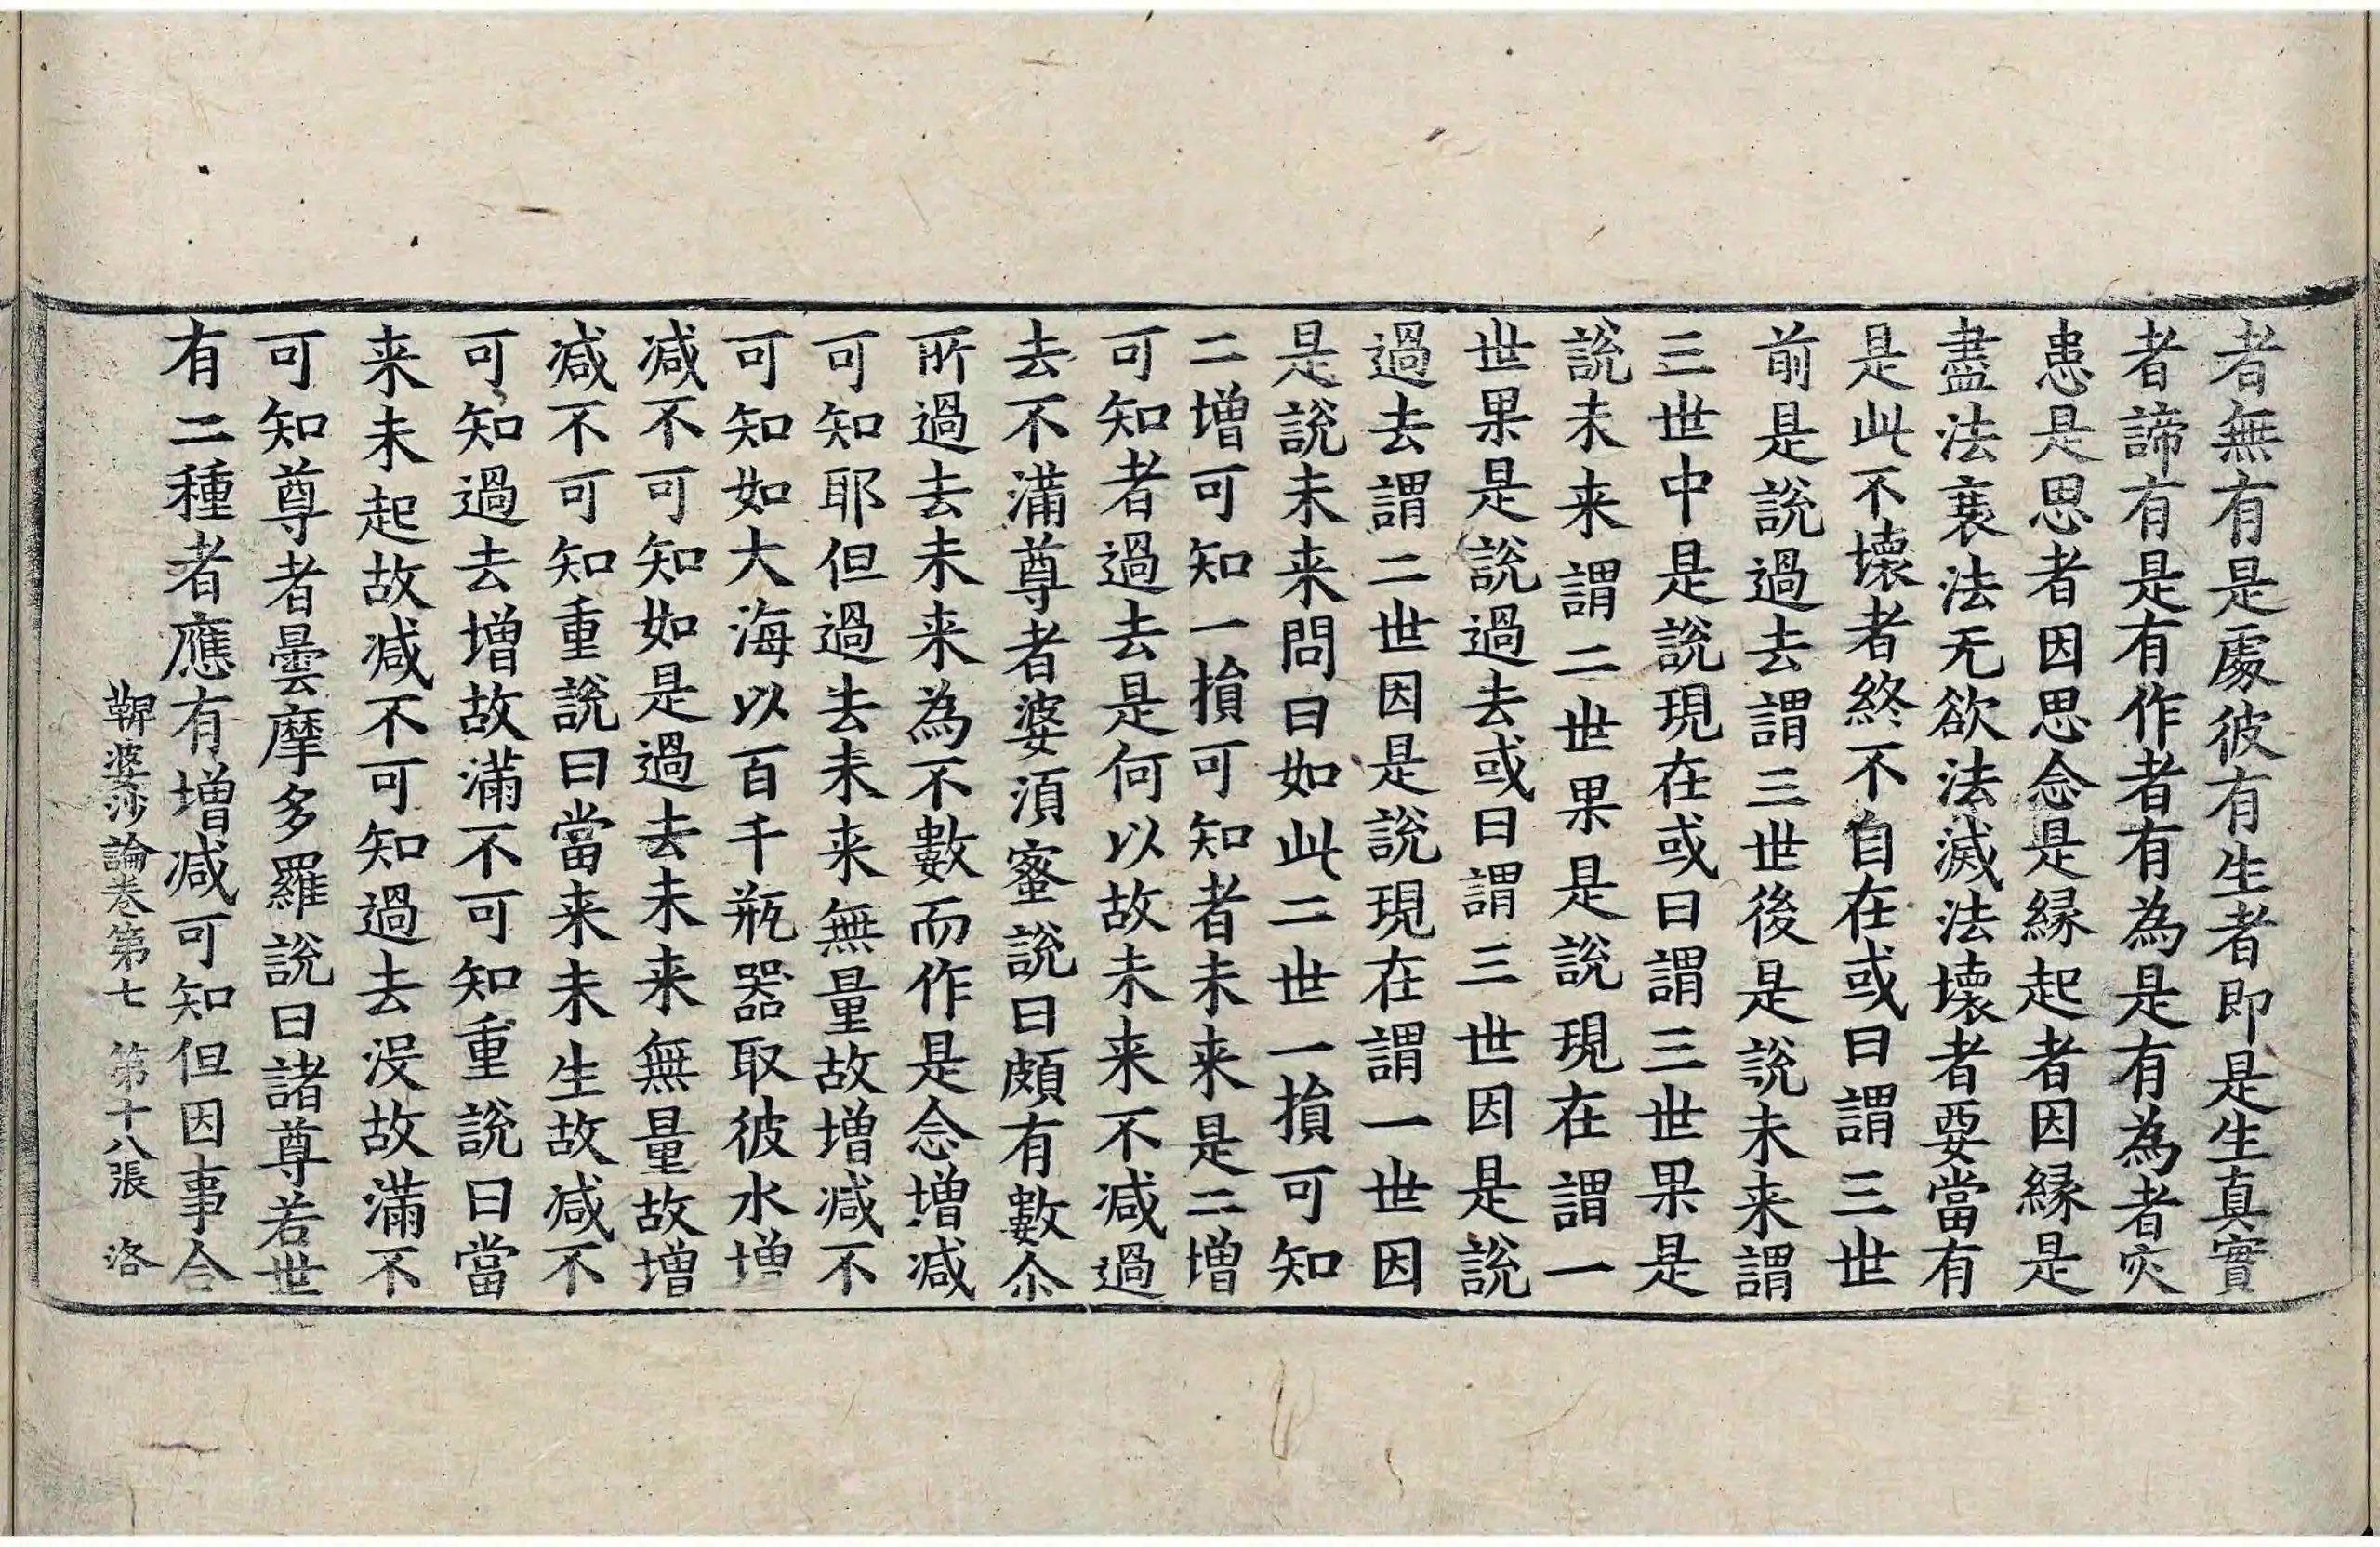 者無有是處彼有生者即是生真實
者諦有是有作者有為是有為者灾
患是思思者因思念是縁起者因縁是
盡法衰法无欲法滅法壞者要當有
是此不壞者終不自在或曰謂三世
前是說過去謂三世後是說未来謂
三世中是說現在或曰謂三世果是
說未来謂二世果是說現在謂一
世果是說過去或曰謂三世因是說
過去謂二世因是說現在謂一世因
是說未来問曰如此二世一損可知
二增可知一損可知者未来是二增
可知者過去是何以故未来不減過
去不滿尊者婆須蜜說曰頗有數尒
所過去未来為不數而作是念增減
可知耶但過去未来無量故增減不
可知如大海以百千瓶器取彼水增
減不可知如是過去未来無量故增
減不可知重說曰當来未生故減不
可知過去增故滿不可知重說曰當
来未起故減不可知過去沒故滿不
可知尊者曇摩多羅說曰諸尊若世
有二種者應有增減可知但因事合
鞞婆沙論卷第七 第十八張 洛